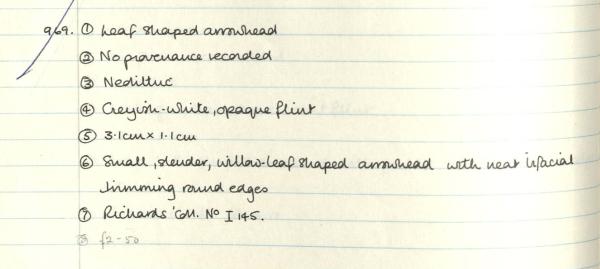 969. ① Leaf shaped arrowhead
② No provenance recorded
③ Neolithic
④ Greyish-white, opaque flint
⑤ 3.1cm x 1.1cm
⑥ Small, slender, willow-leaf shaped arrowhead with neat bifacial
trimming round edges
⑦ Richards' Coll. No I 145.
⑧ £2-50